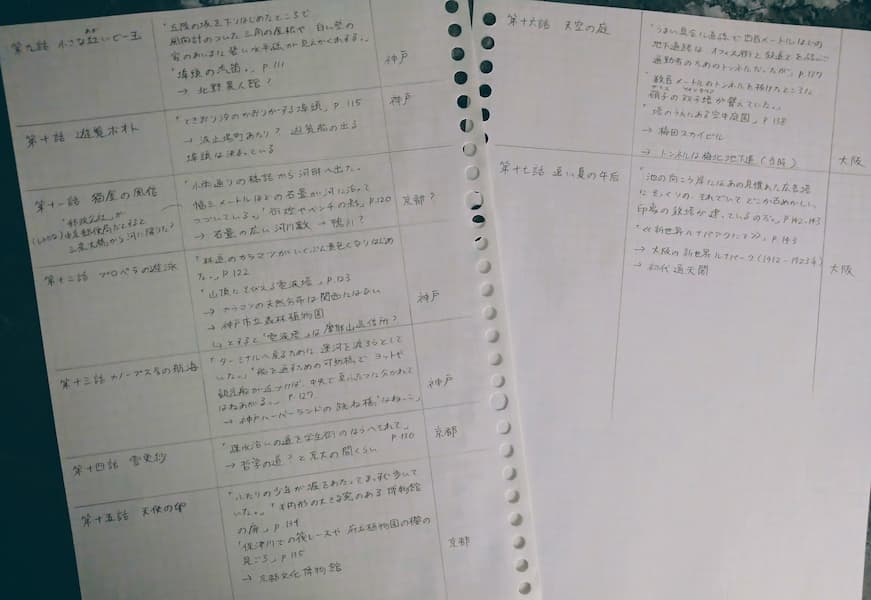 第九話 小さな紅いビー玉
「丘陵の坂を下りはじめたところで
風向計のついた三角の屋根や白い壁の
家のあいまに碧い水平線が見えかくれする。」
「埠頭の汽笛。」 p.111
→ 北野異人館?
神戸
第十話 遊覧ボオト
「ときおり汐のかおりがする埠頭」 p.115
→ 波止場町あたり? 遊覧船の出る
埠頭は決まっている
神戸
第十一話 猫屋の風信
「郵政公社」が
中央郵便局だとすると
三条大橋から河に降りた?
「小街通りの橋詰から河畔へ出た。
幅三メートルほどの石畳が河に沿って
つづいている。」「街燈やベンチの影」p.120
→ 石畳の広い河川敷 → 鴨川?
京都?
第十二話 プロペラの遊泳
「林道のカラマツがいくぶん黄色くなりはじめ
た。」 p.122
「山頂にそびえる電波塔」 p.123
→ カラマツの天然分布は関西にはない
→ 神戸市立森林植物園
とすると「電波塔」は摩耶山送信所?
神戸
第十三話 カノープス号の航海
「ターミナルへ戻るために運河を渡ろうとして
いた。」「船を通すための可動橋で ヨットや
観光船が近づけば、中央で真ふたつに分かれて
はねあがる。」 p.127
→ 神戸ハーバーランドの跳ね橋“はねっこ”
神戸
第十四話 雪更紗
「疎水沿いの道を学生街のほうへそれて」
p.130
→ 哲学の道? と京大の間くらい
京都
第十五話 天使の卵
「ふたりの少年が渡をわたってまっすぐ歩いて
いた。」「半円形の大きな窓のある博物館
の扉」 p.134
「保津川での筏レースや府立植物園の櫻の
見ごろ」 p.135
→ 京都文化博物館
京都
第十六話 天空の庭
「うまい具合に直線で四百メートルほどの
地下通路は オフィス街と鉄道とを結ぶ
通勤者のためのトンネルだったが」 p.137
「数百メートルのトンネルを抜けたところに
硝子の双子塔が聳えていた。」
「塔のうえにある空中庭園」 p.138
→ 梅田スカイビル
→ トンネルは梅北地下道(当時)
大阪
第十七話 遠い夏の午后
「池の向こう岸にはあの見慣れた広告塔
にそっくりの、それでいてどこか古めかしい
印象の鉄塔が建っているのだ。」 p.142-143
「≪新世界ルナパアクにて≫」 p.143
→ 大阪の新世界ルナパーク (1912-1923年)
→ 初代通天閣
大阪